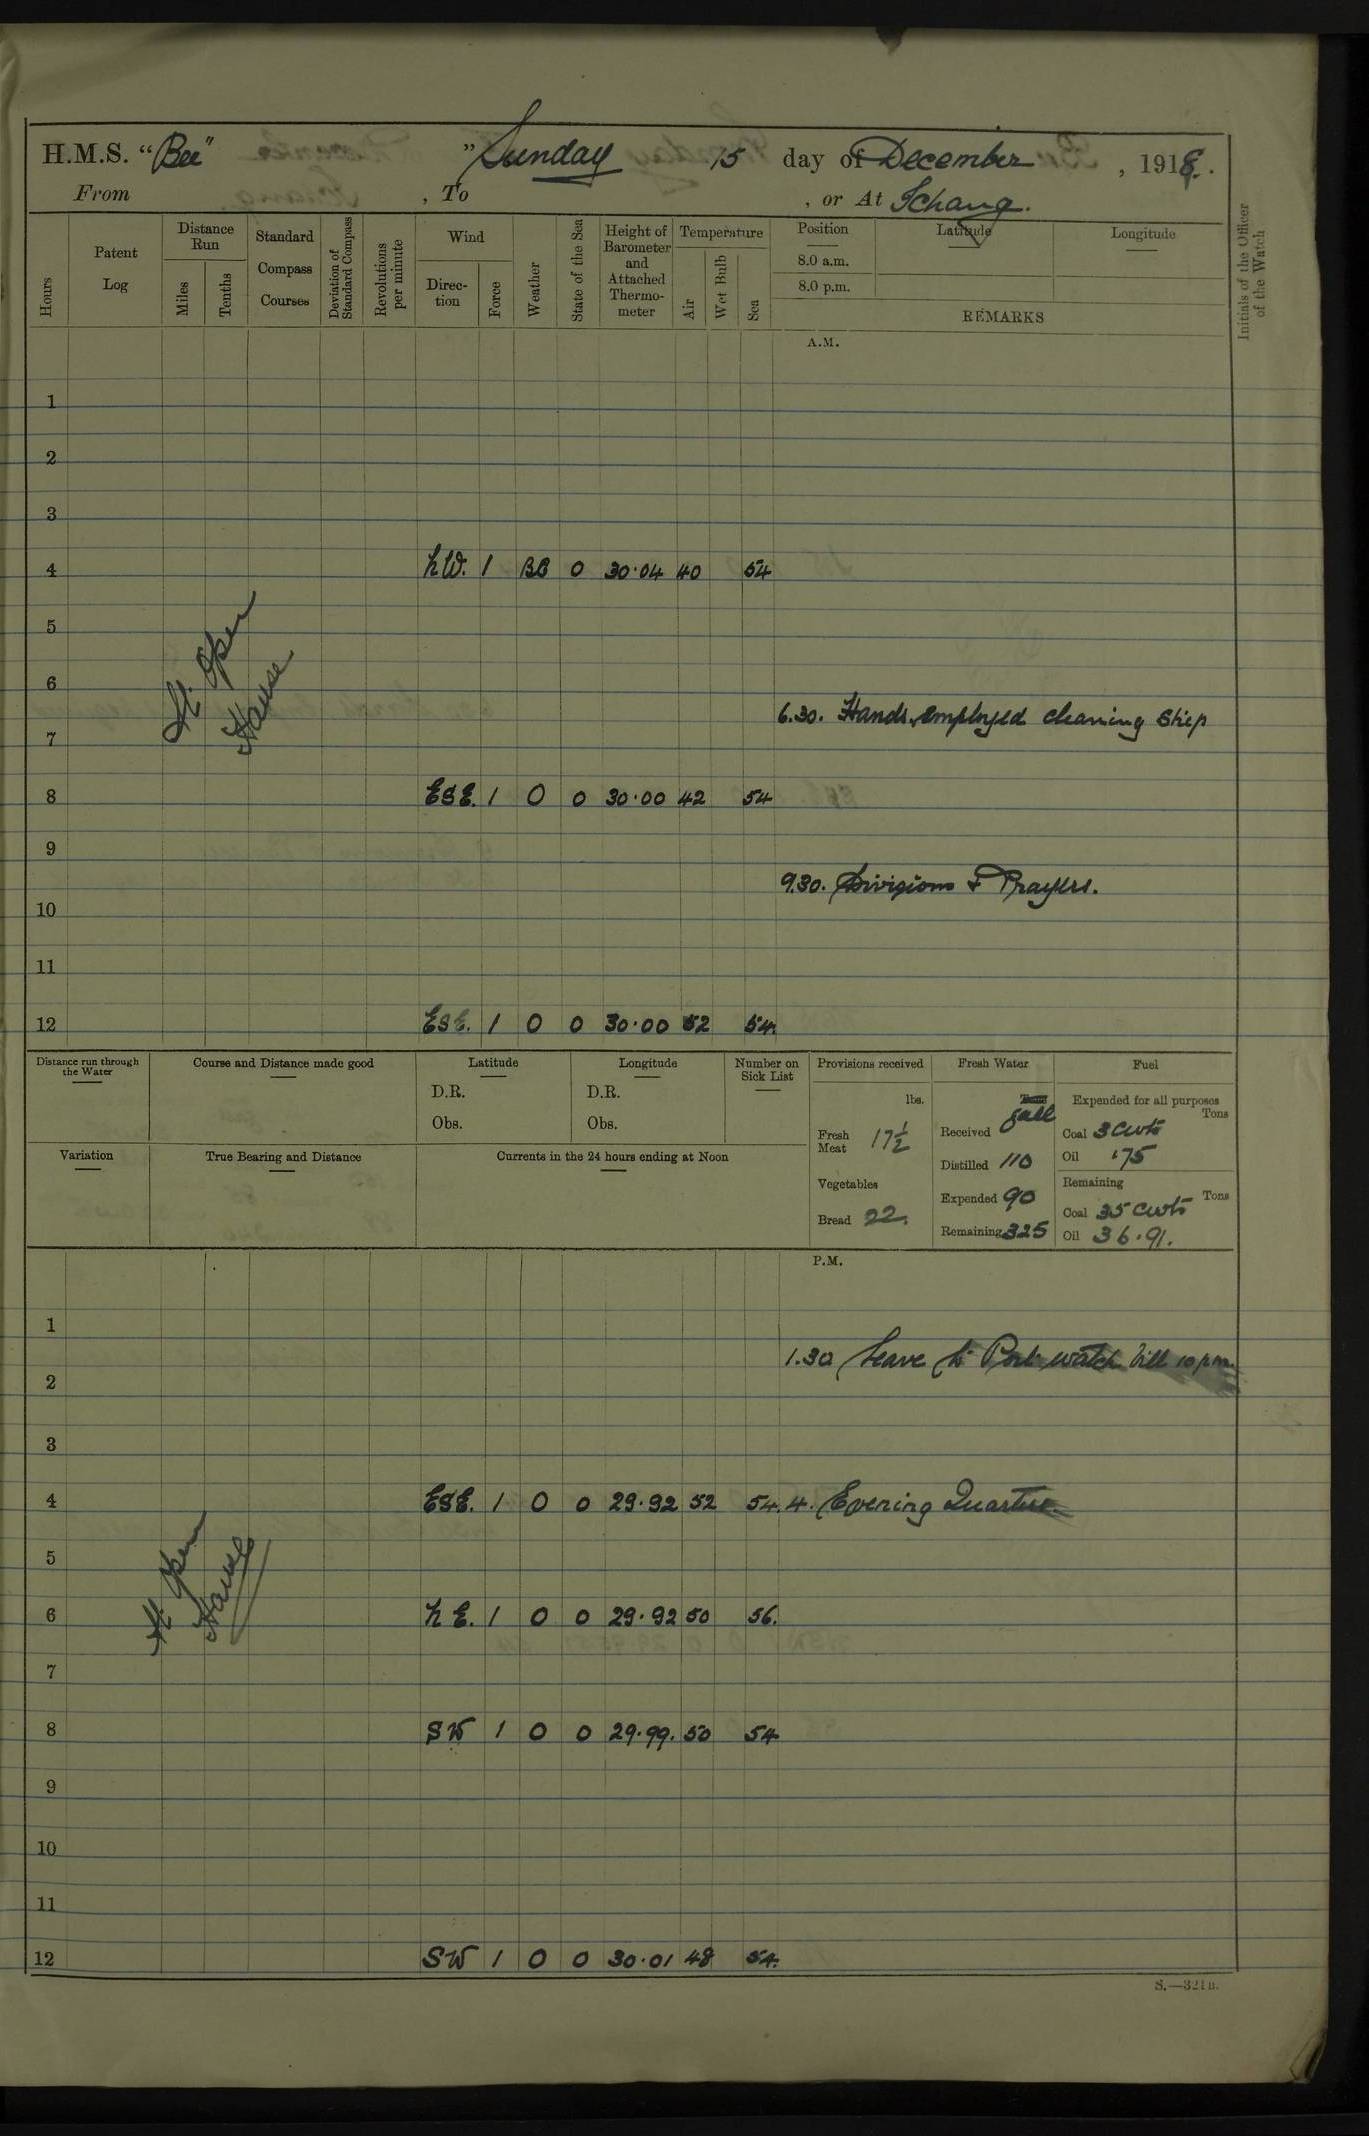 H.M.S. “Bee” ” Sunday 15 day of December , 1918.
From , To , or At Ichang.
Hours
Patent Log
Distance Run
Miles
Tenths
Standard Compass Courses
Deviation of Standard Compass
Revolutions per minute
Wind
Direction
Force
Weather
State of the Sea
Height of Barometer and Attached Thermometer
Temperature
Air
Wet Bulb
Sea
Position
8.0 a.m.
8.0 p.m.
Latitude
Longitude
REMARKS
Initials of the Officer of the Watch
A.M.
1
2
3
4 NW. 1 BC 0 30.04 40 54
5
At Open Hawse
6
6.30. Hands employed cleaning ship
7
8 ESE. 1 O 0 30.00 42 54
9
9.30. Divisions & Prayers.
10
11
12 ESE. 1 O 0 30.00 52 54.
Distance run through the Water
Course and Distance made good
Latitude
D.R.
Obs.
Longitude
D.R.
Obs.
Number on Sick List
Provisions received
lbs.
Fresh Meat 17½
Vegetables
Bread 22.
Fresh Water
Tons
gall
Received
Distilled 110
Expended 90
Remaining 325
Fuel
Expended for all purposes
Tons
Coal 3 cwts
Oil .75
Remaining
Tons
Coal 35 cwts
Oil 36.91.
Variation
True Bearing and Distance
Currents in the 24 hours ending at Noon
P.M.
1
1.30 Leave to Port watch till 10 p.m.
2
3
4 ESE. 1 O 0 29.92 52 54. 4. Evening Quarters
5
At Open Hawse
6 NE. 1 O 0 29.92 50 56.
7
8 SW 1 O 0 29.99. 50 54
9
10
11
12 SW 1 O 0 30.01 48 54.
S.—321B.